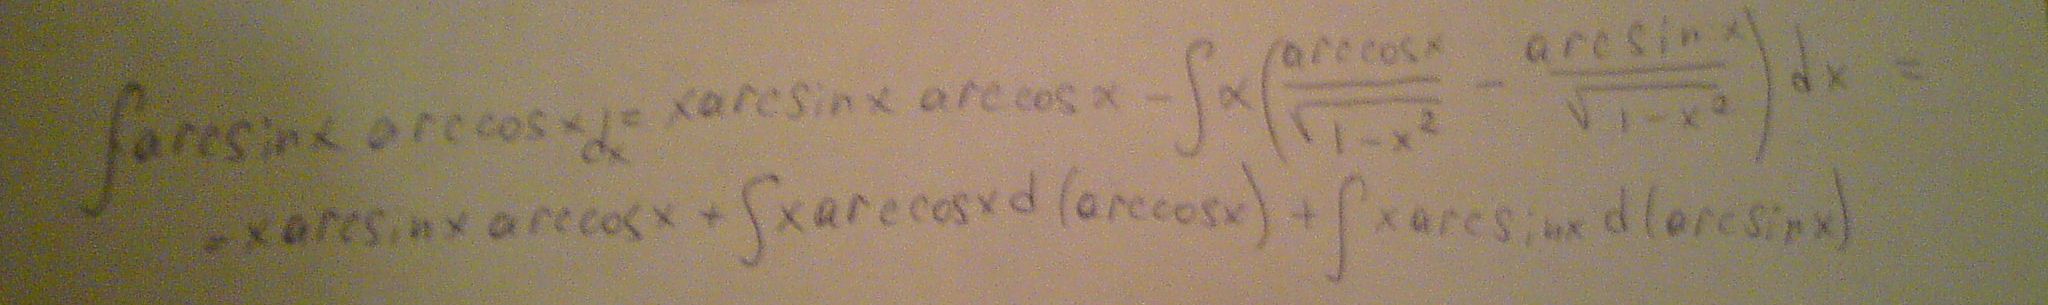 ∫arcsinx arccosx dx = xarcsinx arccosx - ∫x(arccosx/√(1-x²) - arcsinx/√(1-x²))dx =
= xarcsinx arccosx + ∫xarccosxd(arccosx) + ∫xarcsinxd(arcsinx)